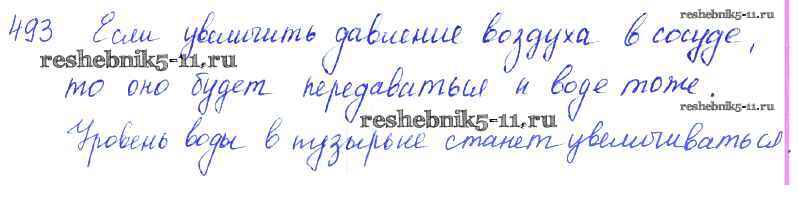 reshebnik5-11.ru
493 Если увеличить давление воздуха в сосуде,
reshebnik5-11.ru
то оно будет передаваться и воде тоже.
reshebnik5-11.ru
reshebnik5-11.ru
Уровень воды в пузырьке станет увеличиваться.